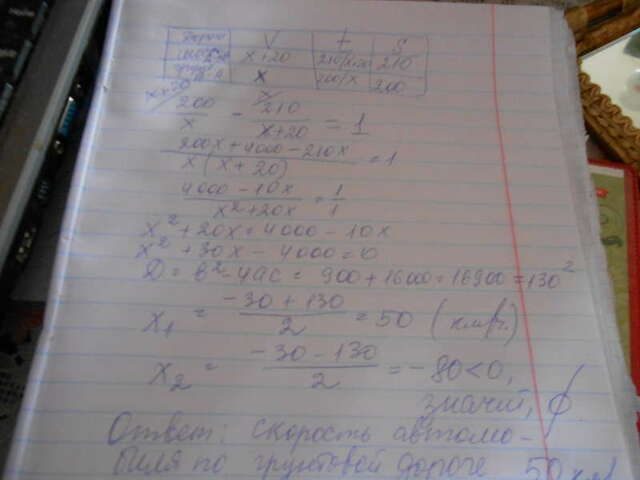 V t S
x+20 210/x+20 210
x 200/x 200
x+20/ x/
200/x - 210/x+20 = 1
200x + 4000 - 210x / x(x+20) = 1
4000 - 10x / x²+20x = 1/1
x² + 20x = 4000 - 10x
x² + 30x - 4000 = 0
D = в² - 4ac = 900 + 16000 = 16900 = 130²
x₁ = -30 + 130 / 2 = 50 (км/ч.)
x₂ = -30 - 130 / 2 = -80 < 0,
значит, ∅
Ответ: скорость автомо-
биля по грунтовой дороге 50